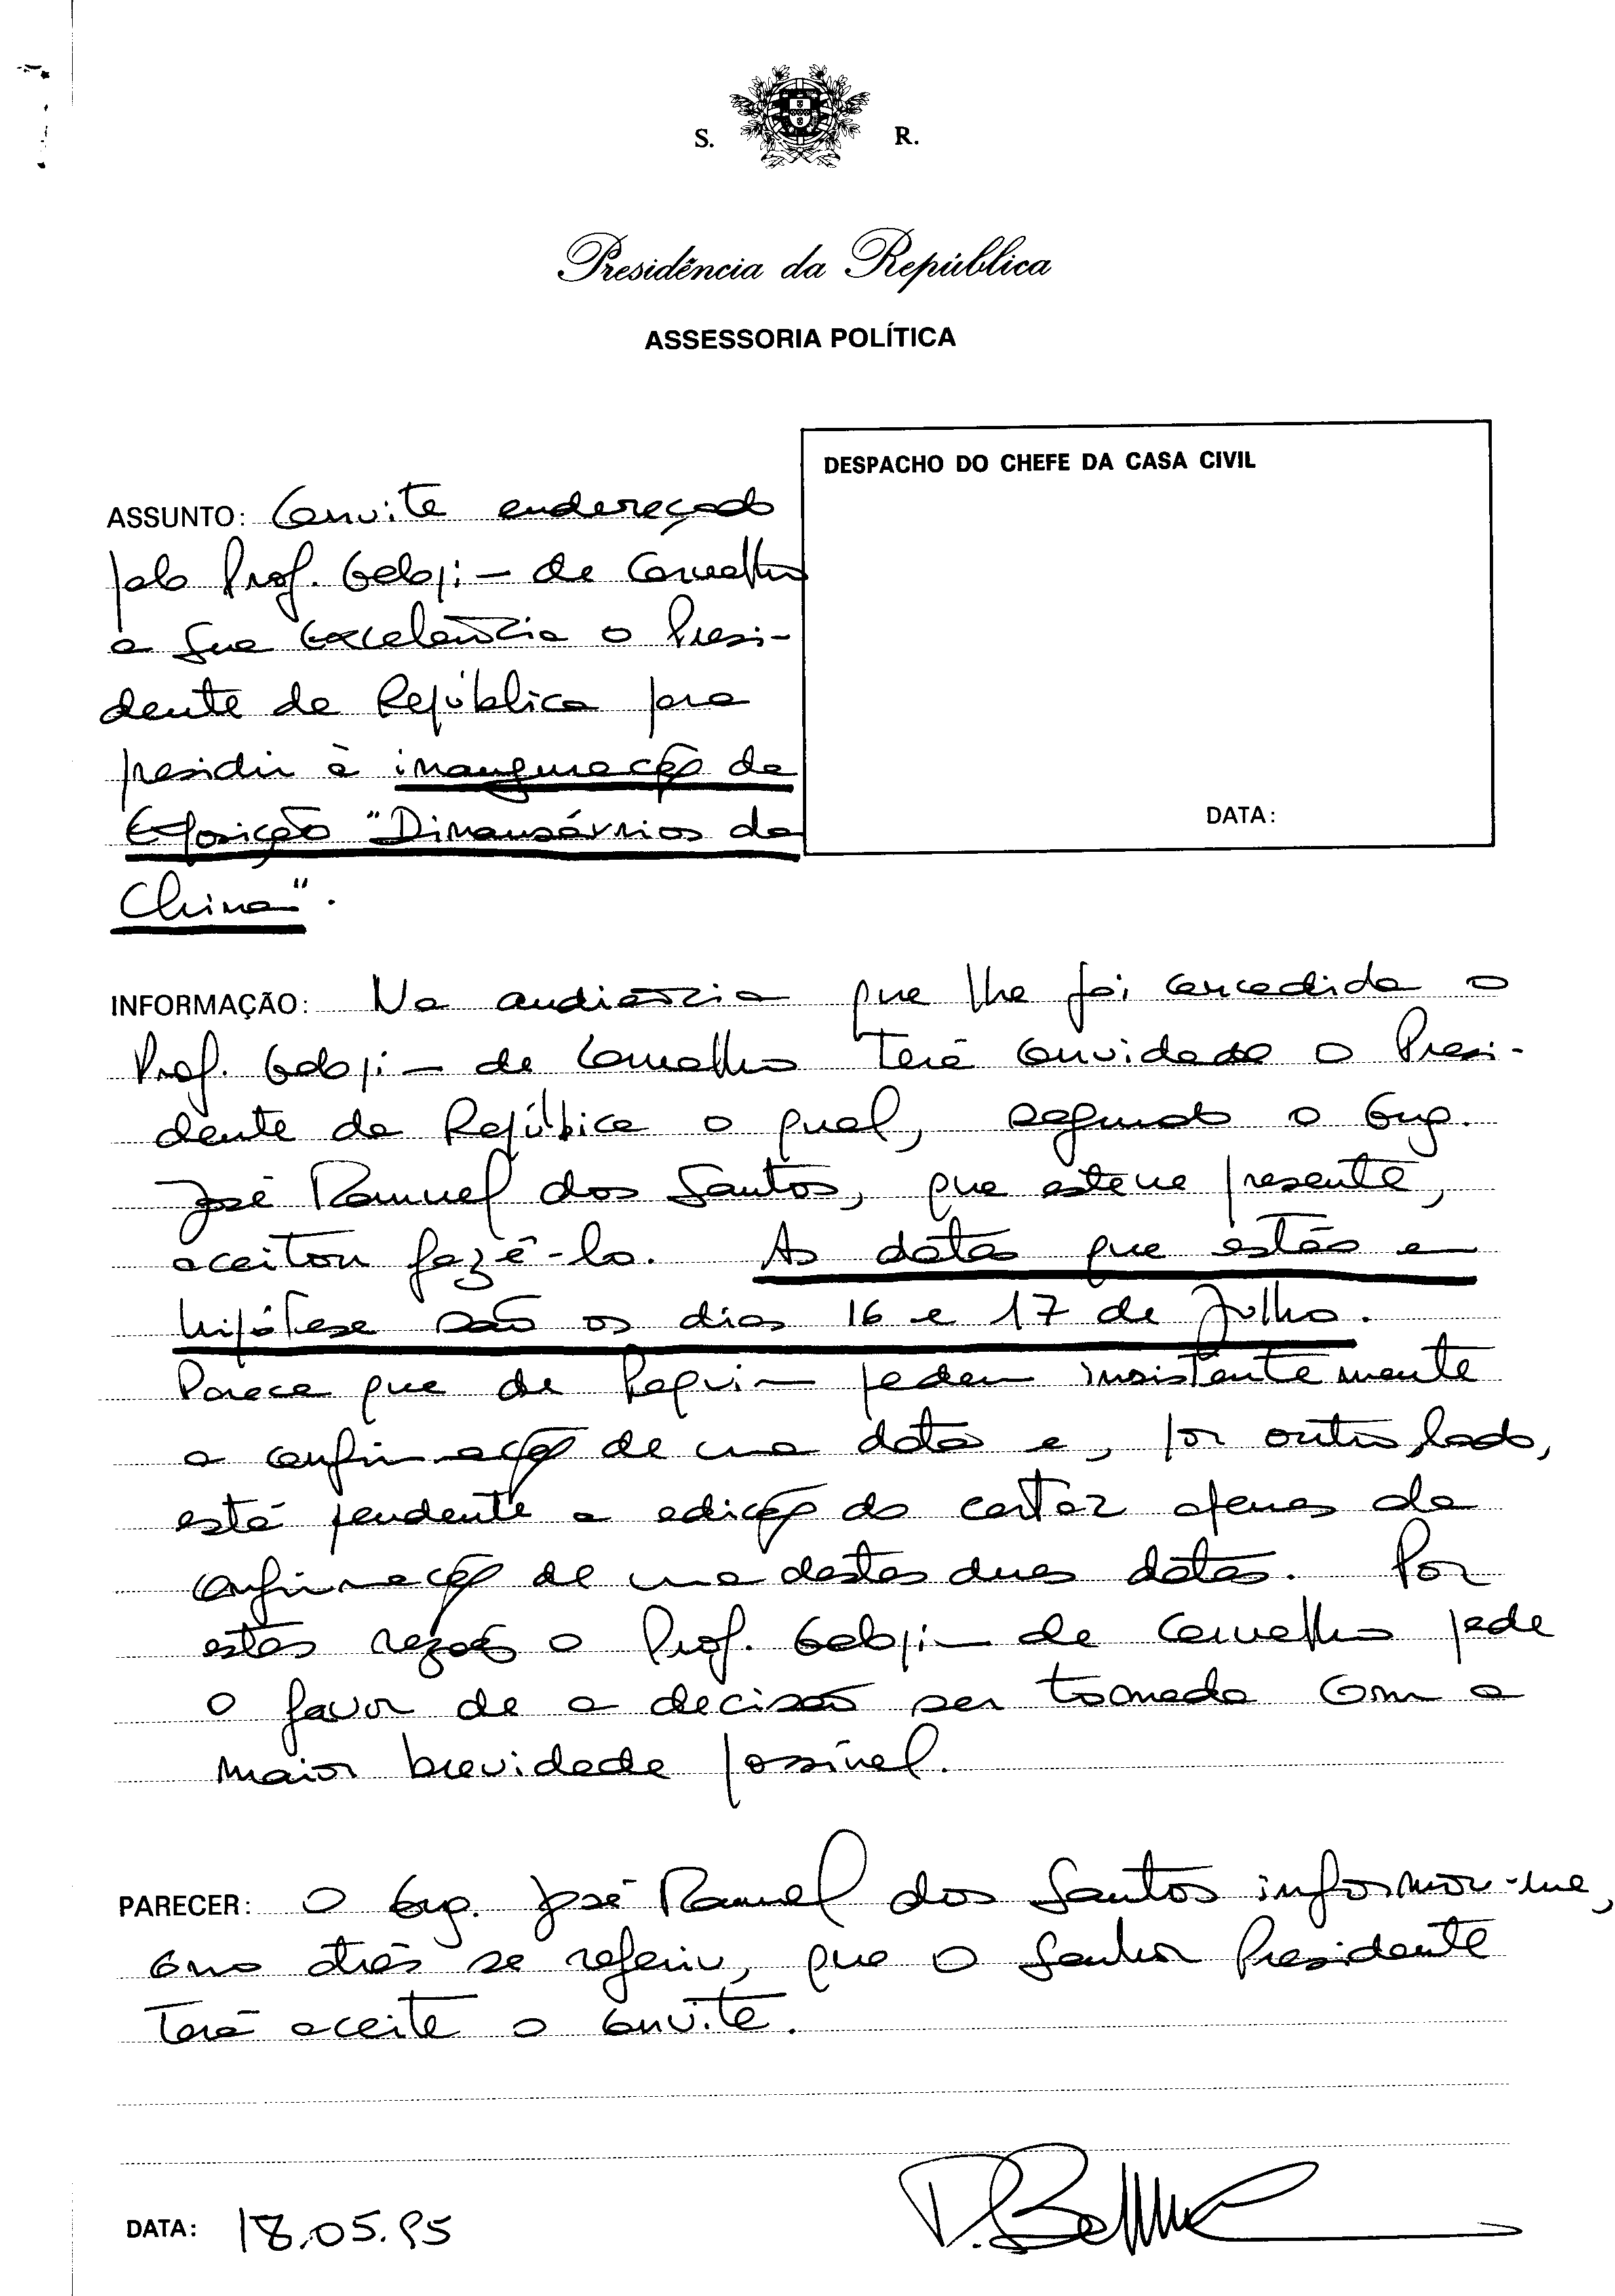 S. R.
Presidência da República
ASSESSORIA POLÍTICA
DESPACHO DO CHEFE DA CASA CIVIL
DATA:
ASSUNTO: Convite endereçado
pelo Prof. Galopim de Carvalho
a Sua Excelência o Presi-
dente da República para
presidir à inauguração da
Exposição "Dinossáurios da
China".
INFORMAÇÃO: Na audiência que lhe foi concedida o
Prof. Galopim de Carvalho terá convidado o Presi-
dente da República o qual, segundo o Eng.
José Manuel dos Santos, que esteve presente,
aceitou fazê-lo. As datas que estão em
hipótese são os dias 16 e 17 de Julho.
Parece que de Pequim pedem insistentemente
a confirmação de uma data e, por outro lado,
está pendente a edição do cartaz apenas da
confirmação de uma destas duas datas. Por
estas razões o Prof. Galopim de Carvalho pede
o favor de a decisão ser tomada com a
maior brevidade possível.
PARECER: O Eng. José Manuel dos Santos informou-me,
como atrás se referiu, que o Senhor Presidente
terá aceite o convite.
DATA: 18.05.95